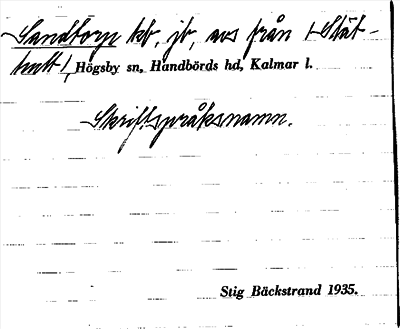 Sandtorp kb, jb, avs från 1 Stät-
hult 1, Högsby sn, Handbörds hd, Kalmar l.
Skriftspråksnamn.
Stig Bäckstrand 1935.